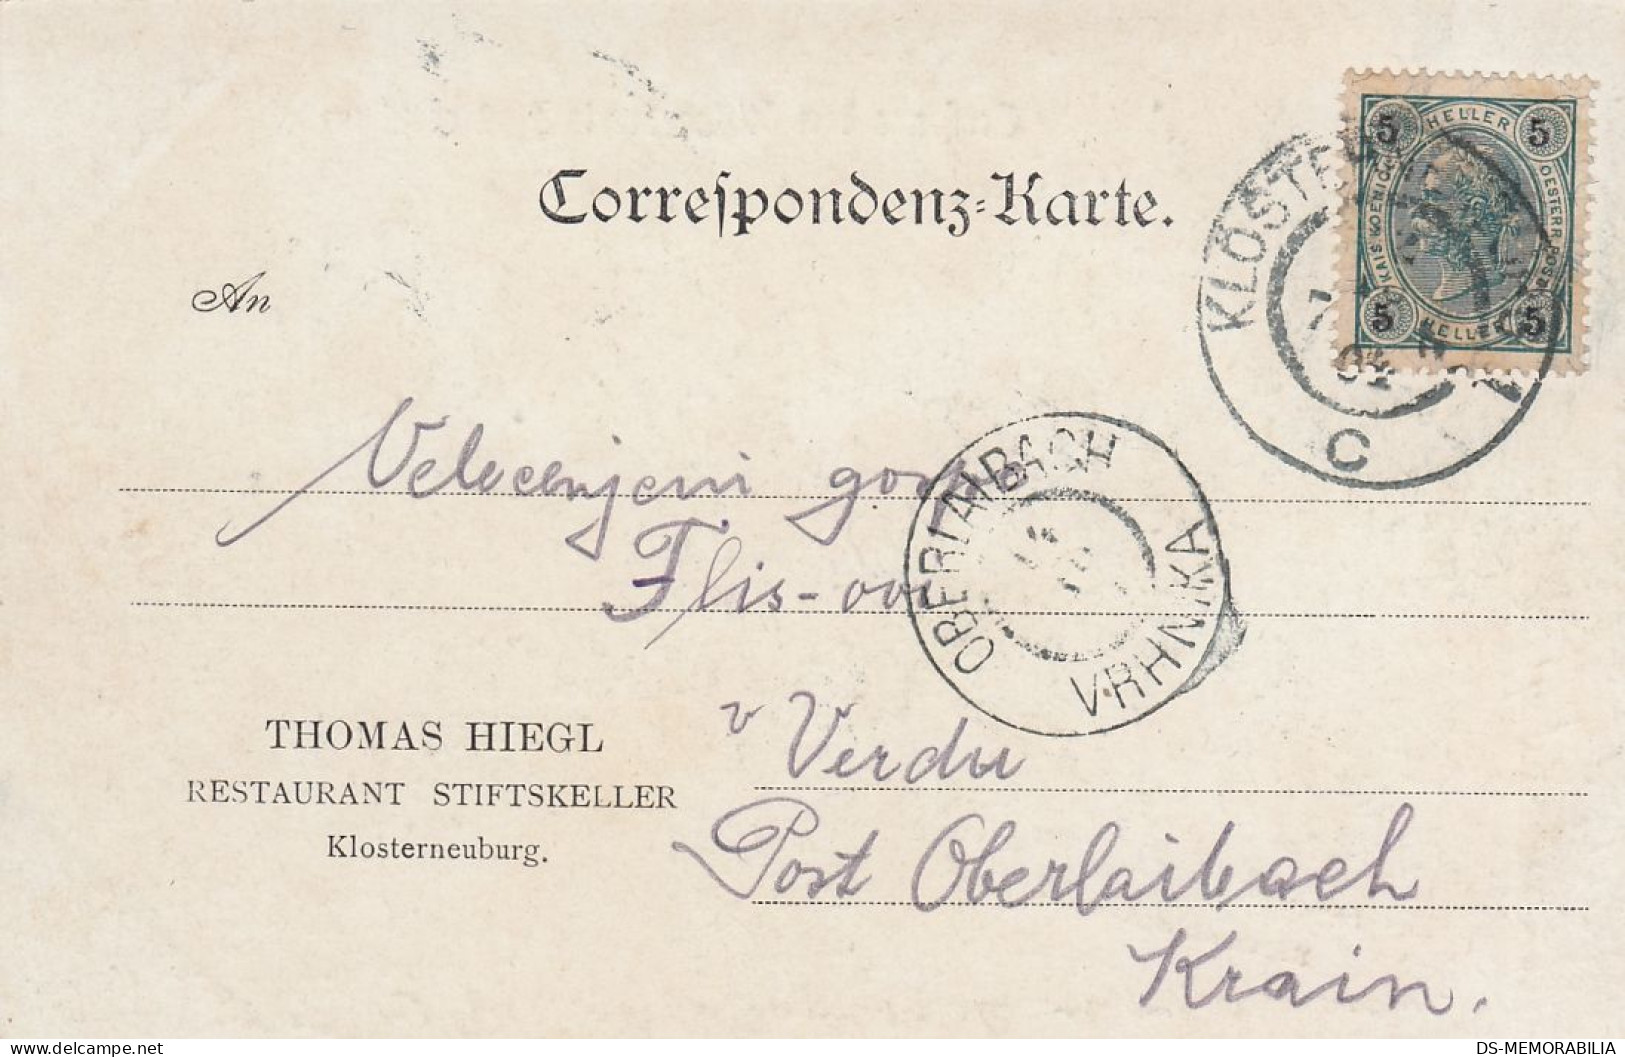 Correspondenz-Karte.
An
5 HELLER 5
KAIS. KOENIGL.
OESTERR. POST
5 HELLER 5
KLOSTER
04
C
Velecenjeni gosp.
Flis-ovi
OBERLAIBACH
VRHNIKA
v Verdu
THOMAS HIEGL
RESTAURANT STIFTSKELLER
Klosterneuburg.
Post Oberlaibach
Krain.
DS-MEMORABILIA